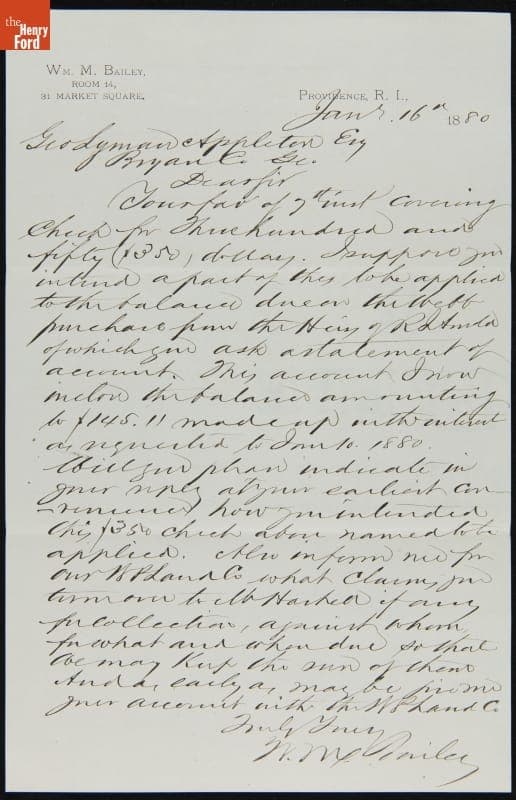 the
Henry
Ford
WM. M. BAILEY,
ROOM 14,
31 MARKET SQUARE.
PROVIDENCE, R. I.,
Jany. 16th 1880
Geo Lyman Appleton Esq
Bryan Co Ge.
Dear Sir
Your fav of 7th inst covering
Check for Three hundred and
fifty ($350) dollars. I suppose you
intend a part of this to be applied
to the balance due on the Webb
purchase from the Heirs of R
of which you ask a statement of
account. This account I now
inclose the balance amounting
to $145.11 made up with interest
as requested to Jan 10. 1880.
Will you please indicate in
your reply at your earliest con-
-venience how you intended
this $350 check above named to be
applied. Also inform me for
our Land Co what claims you
turn over to Mr Haskell if any
for collection, against whom,
for what and when due so that
we may keep the run of them
And as early as may be give me
your account with the Land Co
Truly Yours
W. M. Bailey